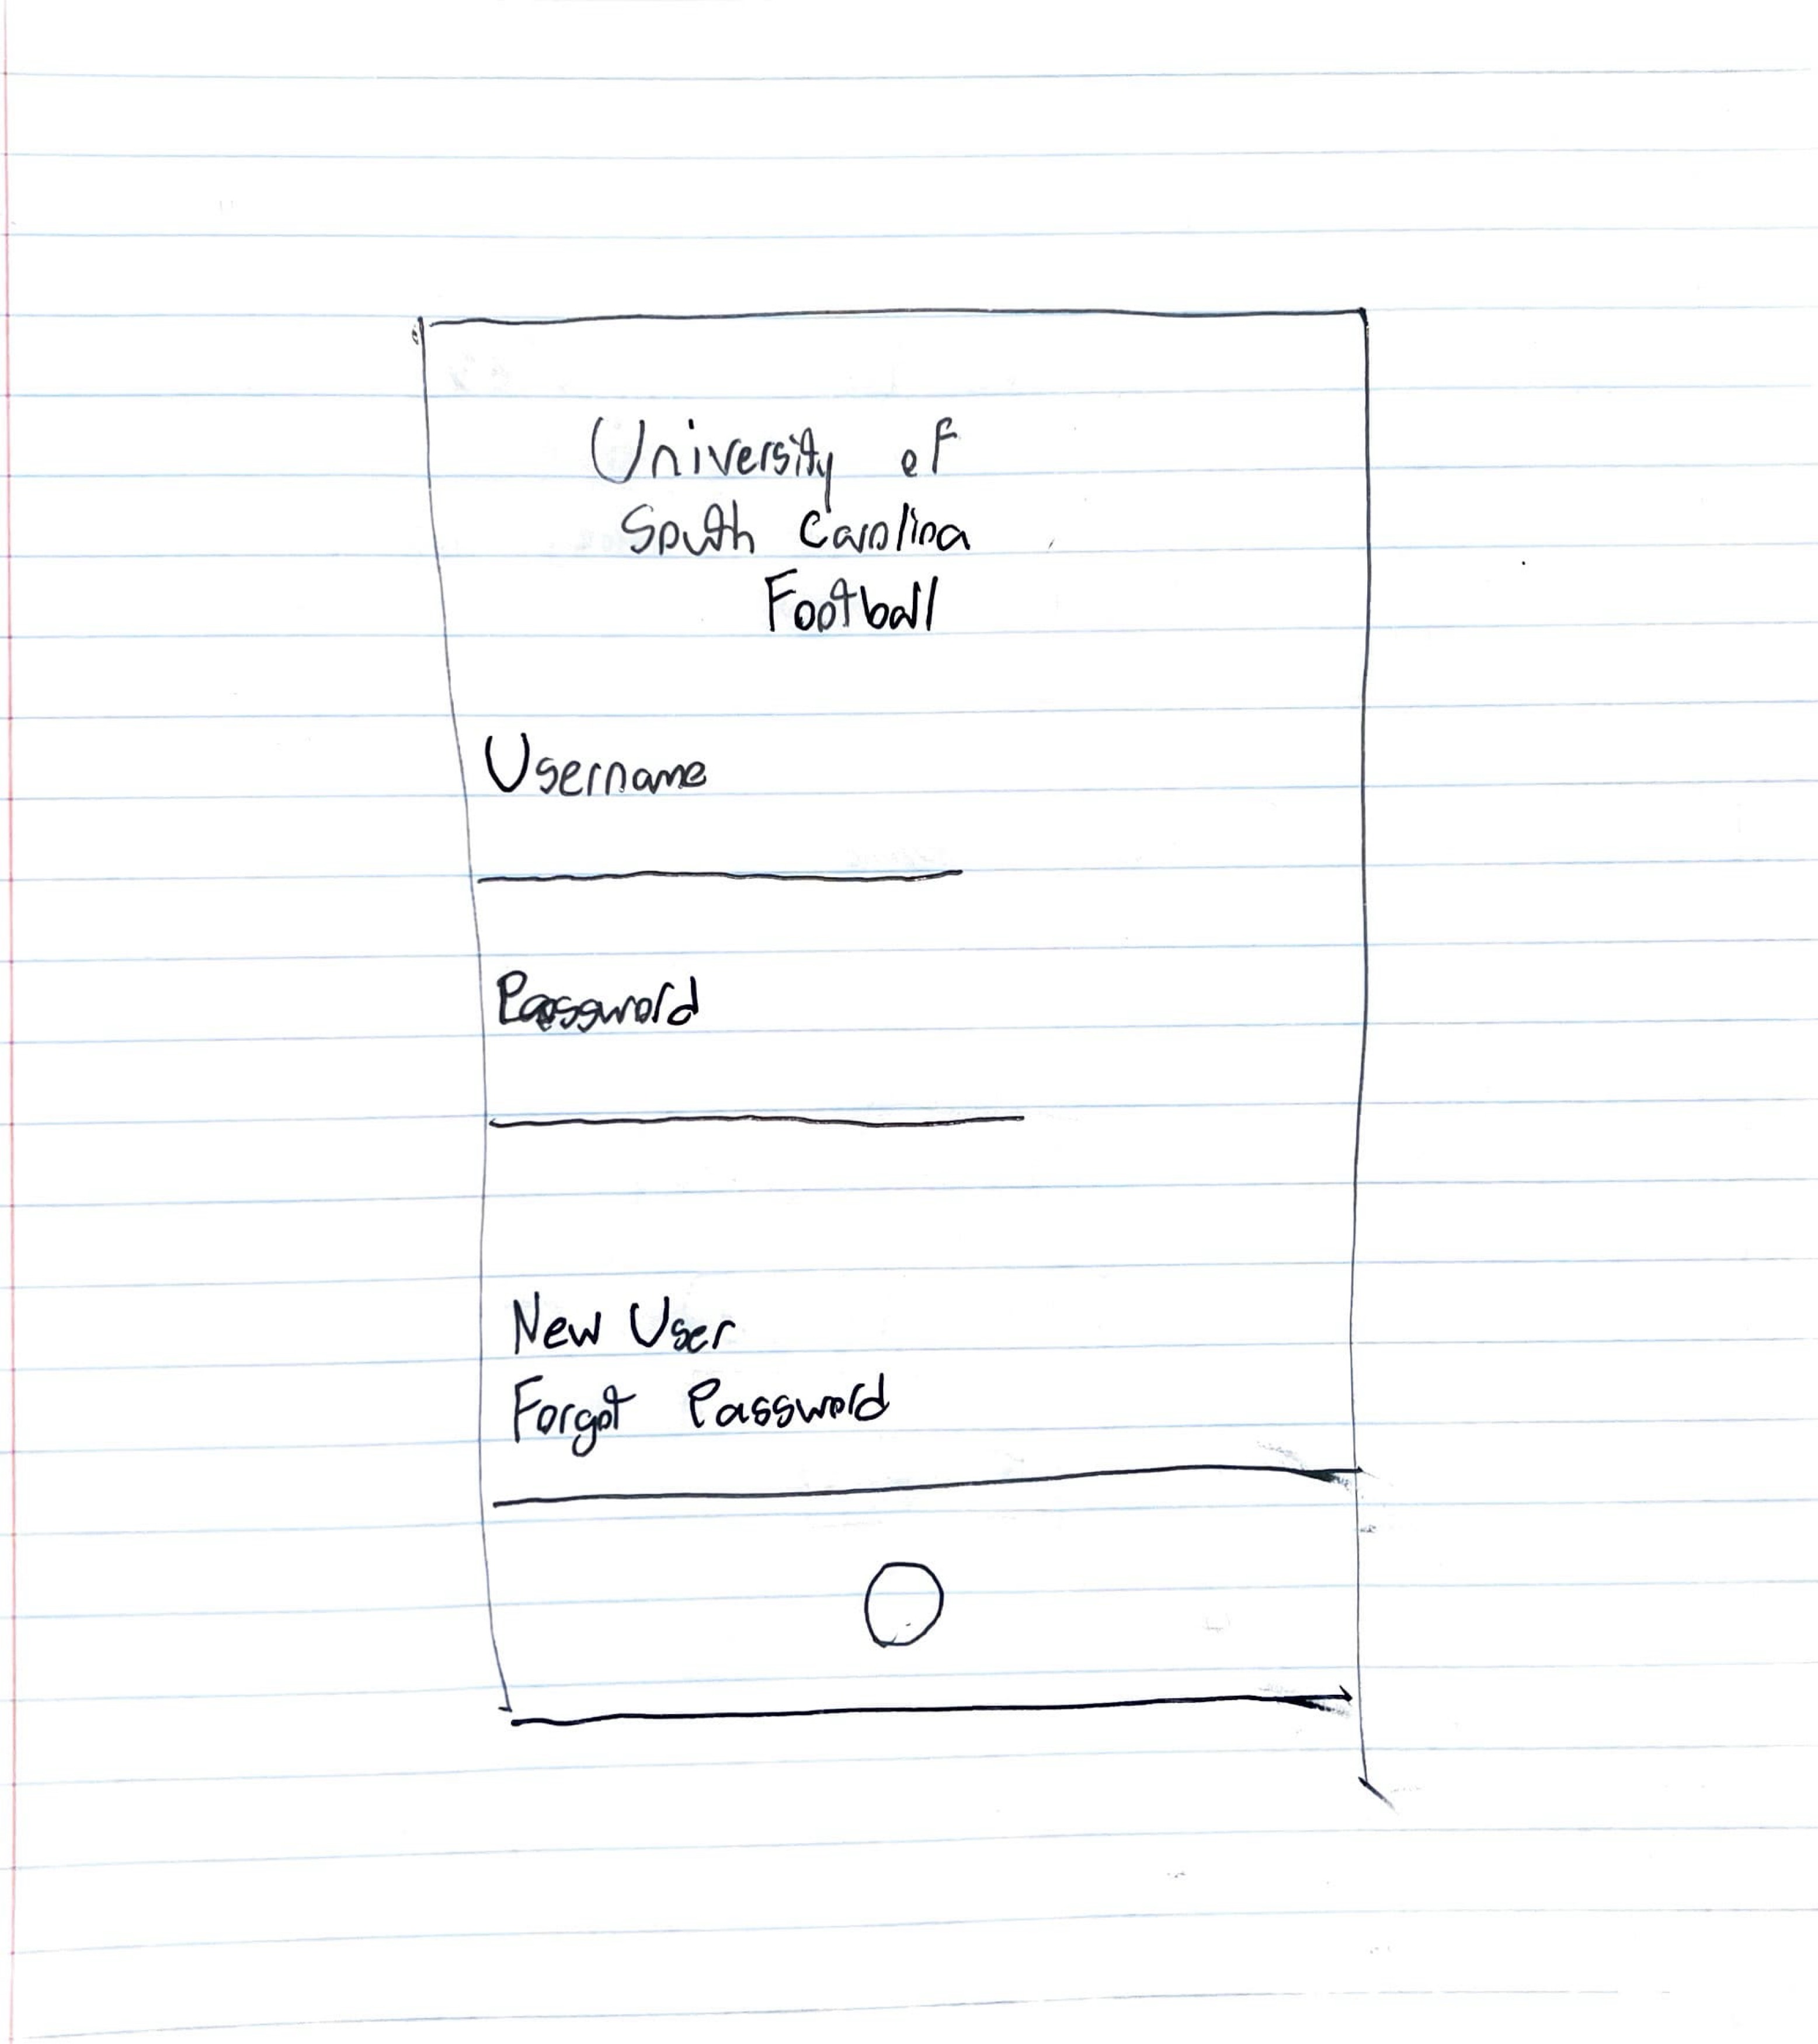 University of
South Carolina
Football
Username
Password
New User
Forgot Password